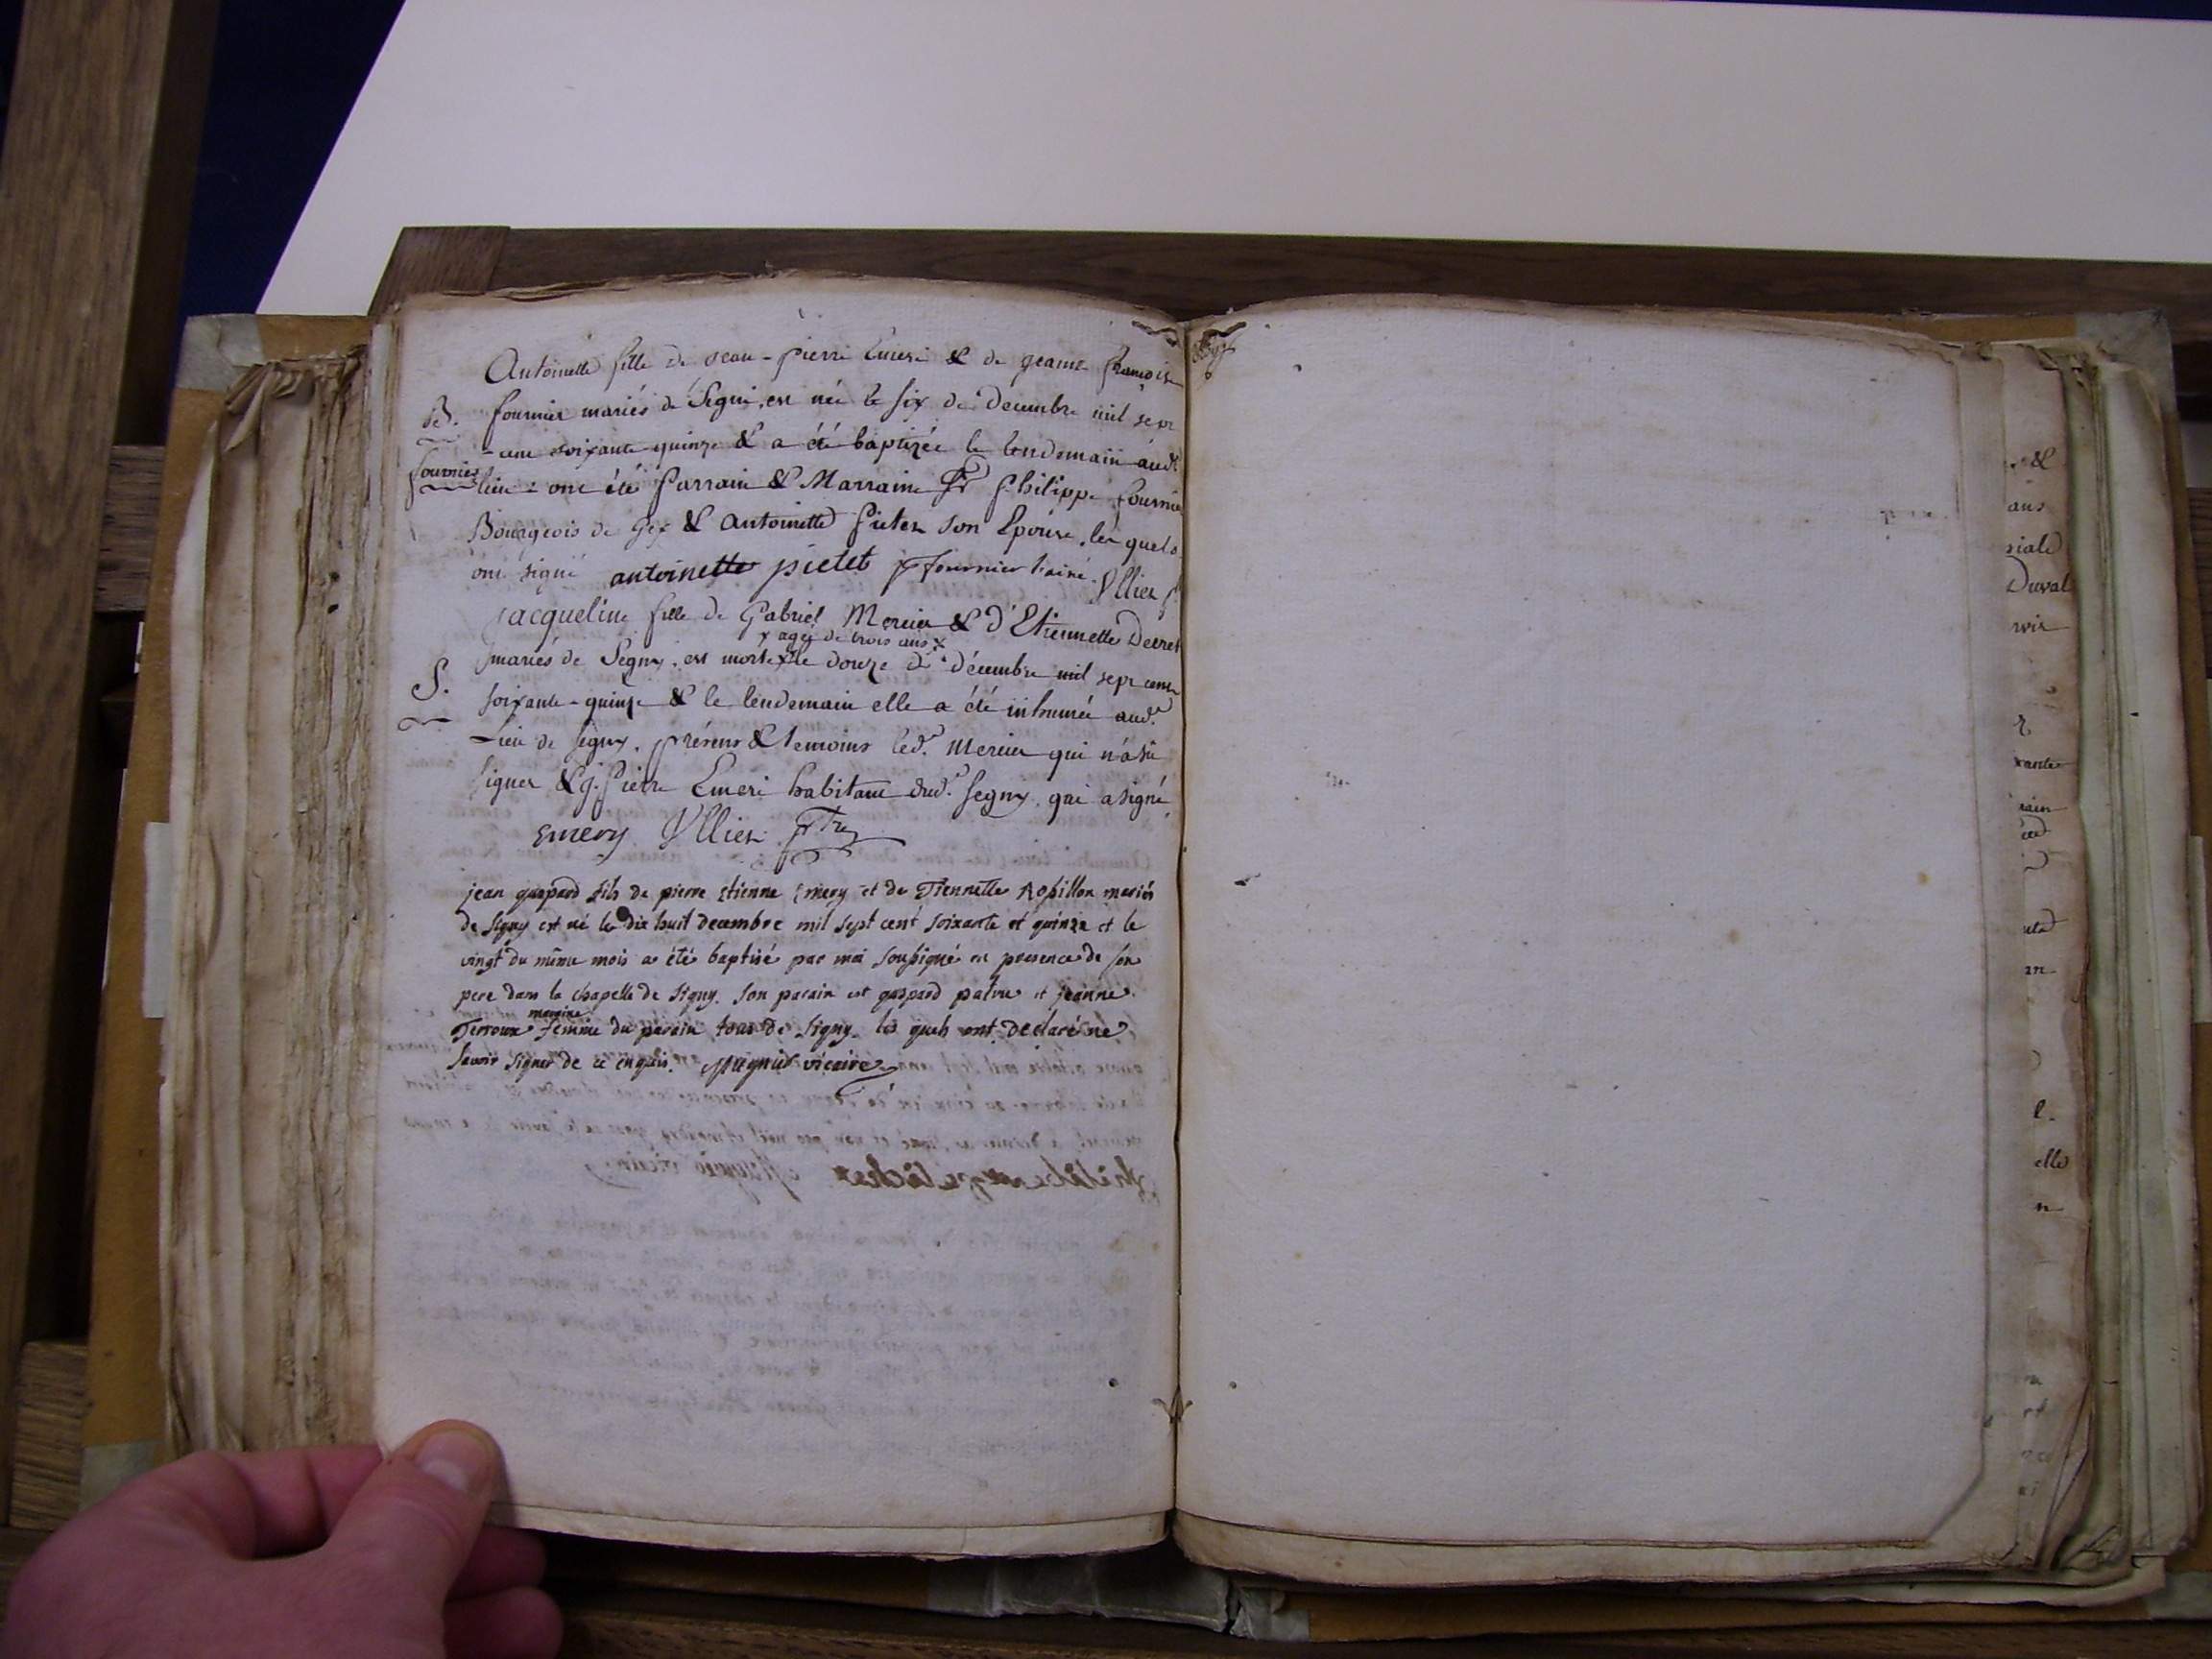 Antoinette fille de Jean-Pierre Emeri & de jeanne françoise
B. fournier mariés de Segni, est née le six de Decembre mil sept
- cent soixante quinze & a été baptizée le lendemain aud.
fournier lieu: ont été Parrain & Marraine Sr Philippe fournier
Bourgeois de Gex & Antoinette Pictet son Epouse, les quels
ont signé antoinette pictet p fournier l'ainé. Ullier p.
Jacqueline fille de Gabriel Mercier & d'Etiennette Decret
x agée de trois ans x
mariés de Segny, est morte x le douze de décembre mil sept cent
S. soixante-quinze & le lendemain elle a été inhumée aud.
Lieu de Segny. présens & temoins led. Mercier qui n'a su
signer & j. Pierre Emeri habitant dud. Segny, qui a signé
Emery Ullier ptre
jean gaspard fils de pierre Etienne Emery et de Tiennette Rossillon mariés
de Signy est né le dix huit decembre mil sept cent soixante et quinze et le
vingt du même mois a été baptisé par moi soussigné en presence de son
pere dans la chapelle de Signy. Son parain est gaspard patru et jeanne
maraine
Terroux femme du parain tous de Signy. les quels ont declaré ne
savoir signer de ce enquis. Mugnié vicaire
&
ans
riale
Duval
voir
vante
rain
elle
n